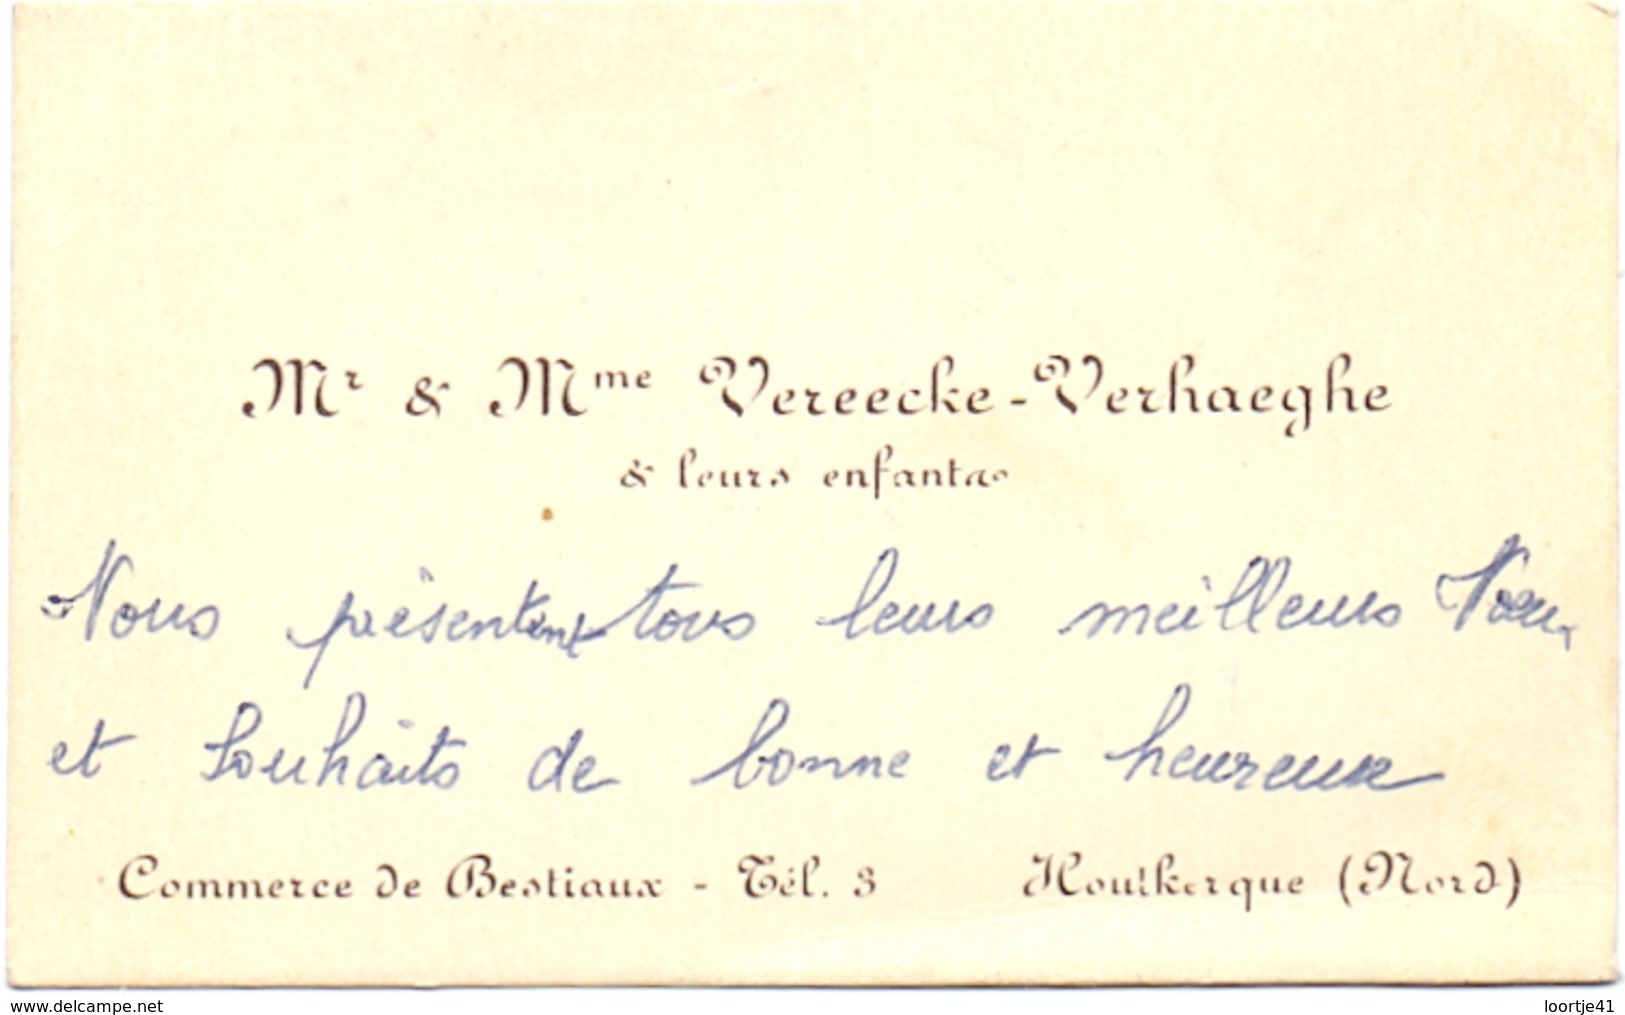 Mr & Mme Vereecke-Verhaeghe
& leurs enfants
Nous présentent tous leurs meilleurs Vœux
et Souhaits de bonne et heureuse
Commerce de Bestiaux - Tél. 3 Houtkerque (Nord)
www.delcampe.net loortje41